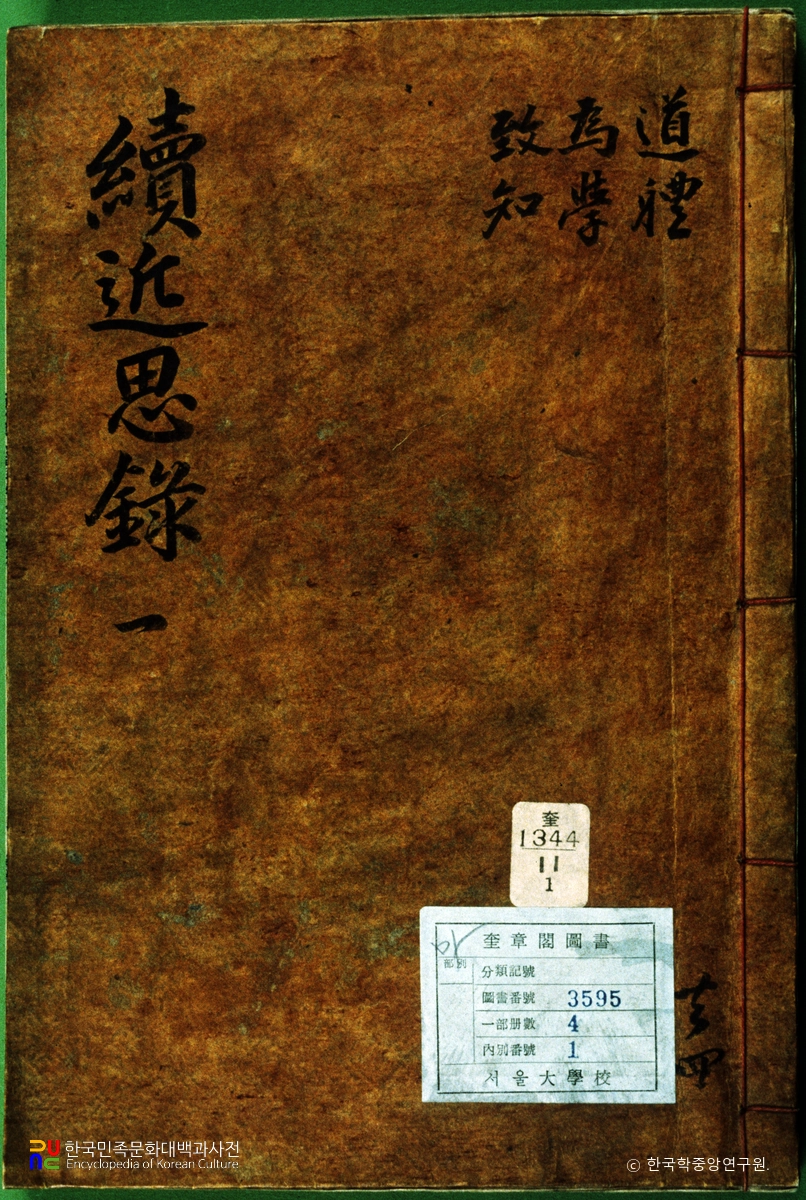 續近思錄 一
道體
爲學
致知
共四
奎
1344
11
1
奎章閣圖書
部別
分類記號
圖書番號 3595
一部册數 4
內別番號 1
서울大學校
한국민족문화대백과사전
Encyclopedia of Korean Culture
© 한국학중앙연구원.